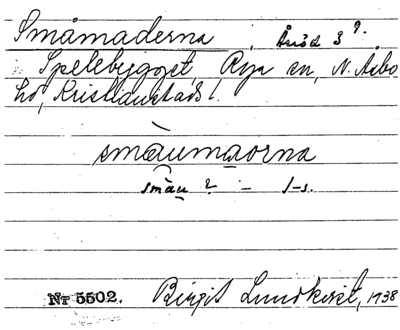 Småmaderna, Åröd 3⁹.
Spelebygget, Rya sn, N. Åsbo
hd, Kristianstads l.
smäumaorna
smäu 2 – 1-s.
Nr 5502. Birgit Lundkvist, 1938